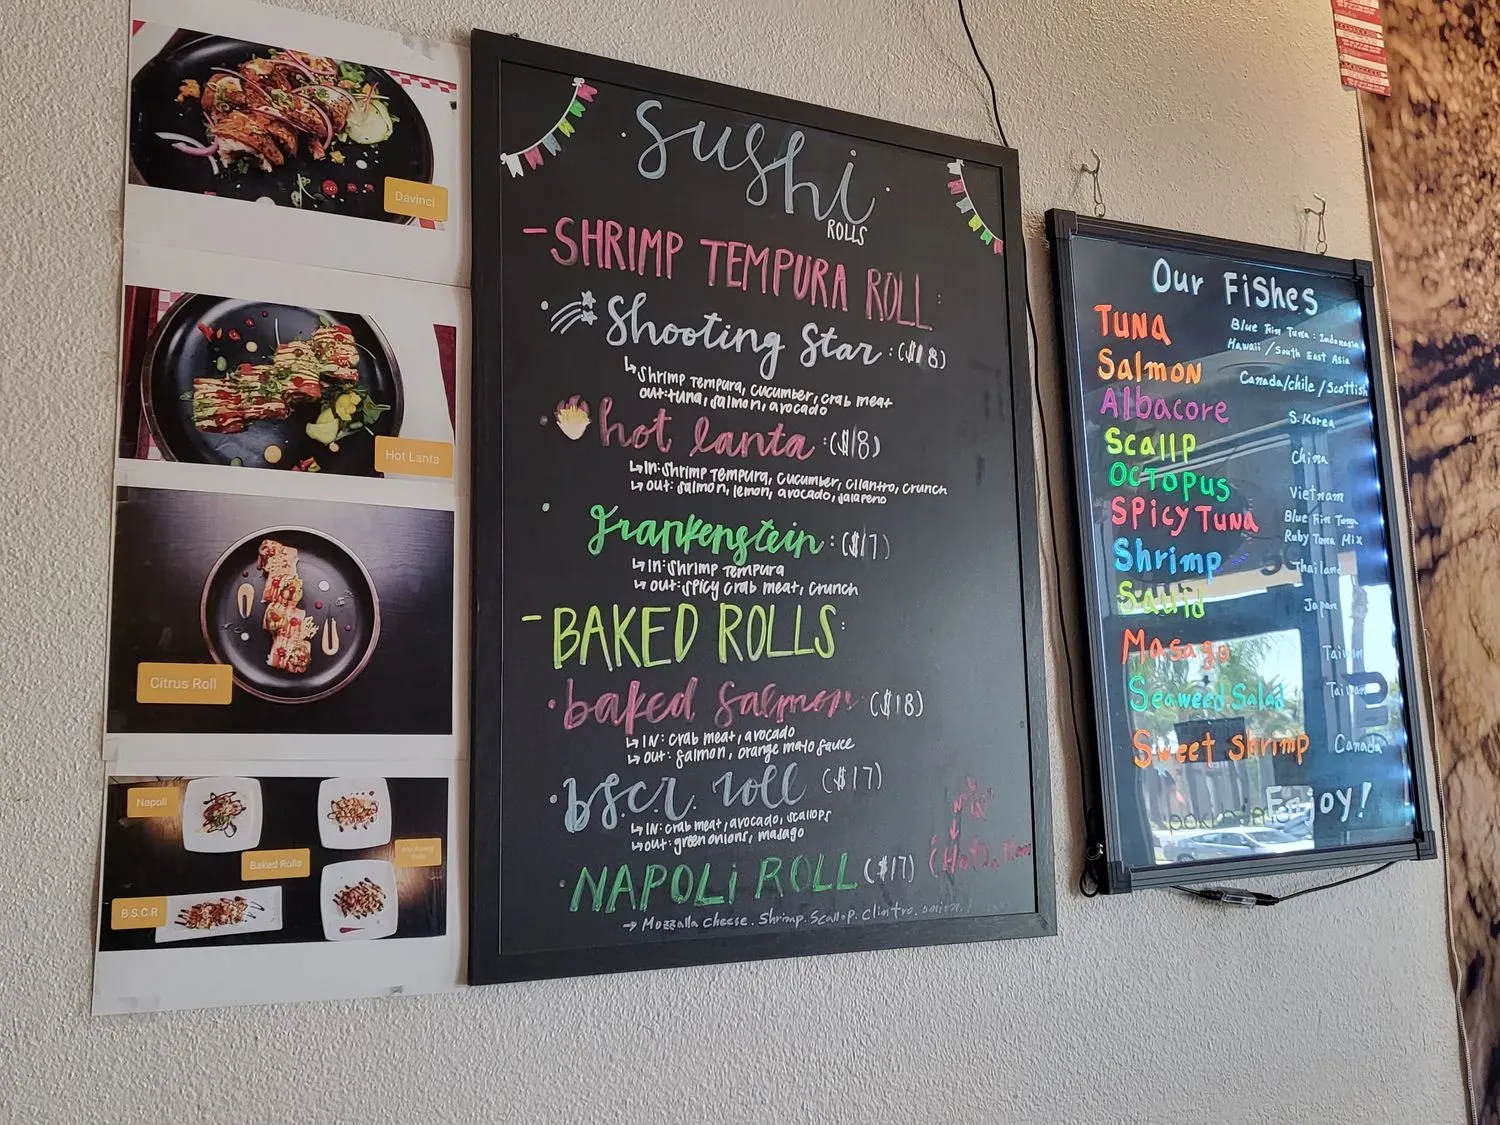 Davinci
Hot Lanta
Citrus Roll
Napoli
Baked Rolls
B.S.C.R
sushi
ROLLS
- SHRIMP TEMPURA ROLL:
Shooting Star: ($18)
↳ Shrimp Tempura, cucumber, crab meat
out: tuna, salmon, avocado
hot lanta: ($18)
↳ IN: Shrimp Tempura, cucumber, cilantro, crunch
↳ out: salmon, lemon, avocado, jalapeno
frankenstein: ($17)
↳ IN: Shrimp Tempura
↳ out: spicy crab meat, crunch
- BAKED ROLLS:
· baked salmon ($18)
↳ IN: crab meat, avocado
↳ out: salmon, orange mayo sauce
· b.s.c.r. roll ($17)
↳ IN: crab meat, avocado, scallops
↳ out: green onions, masago
· NAPOLi ROLL ($17) (Hot)
→ Mozzalla cheese. Shrimp. Scallop. Clintro. onion.
Our Fishes
Tuna Blue Fin Tuna: Indonesia
Hawaii / South East Asia
Salmon Canada/chile/Scottish
Albacore S. Korea
Scallp China
Octopus Vietnam
Spicy Tuna Blue Fin Tuna
Ruby Tuna Mix
Shrimp Thailand
Squid Japan
Masago Taiwan
Seaweed Salad Taiwan
Sweet Shrimp Canada
Enjoy!